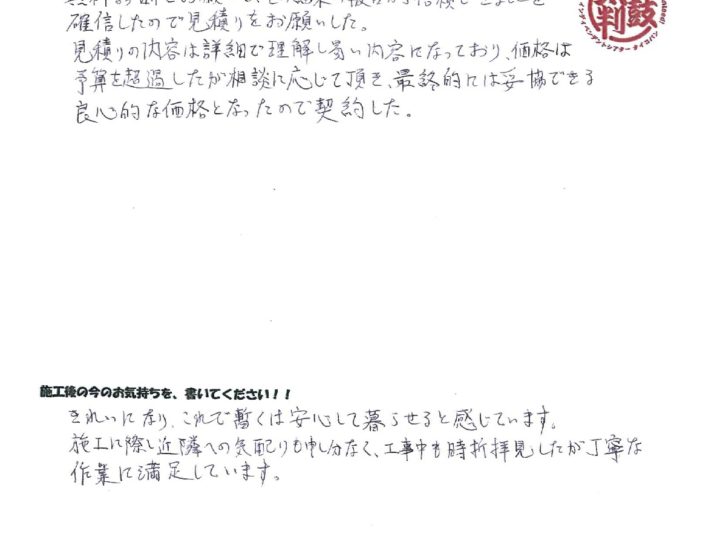 確信したので見積りをお願いした。
見積りの内容は詳細で理解し易い内容になっており、価格は
予算を超過したが相談に応じて頂き、最終的には妥協できる
良心的な価格となったので契約した。
施工後の今のお気持ちを、書いてください！！
きれいになり、これで暫くは安心して暮らせると感じています。
施工に際し近隣への気配りも申し分なく、工事中も時折拝見したが丁寧な
作業に満足しています。